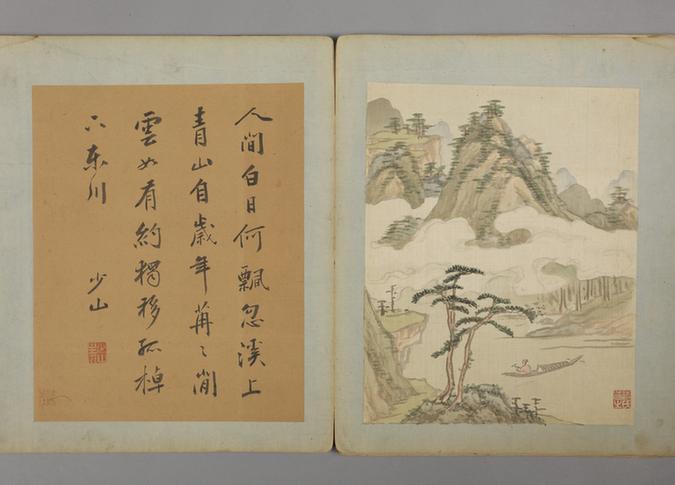 人間白日何飄忽溪上
青山自歲年苒〻閒
雲如有約獨移孤棹
下東川
少山